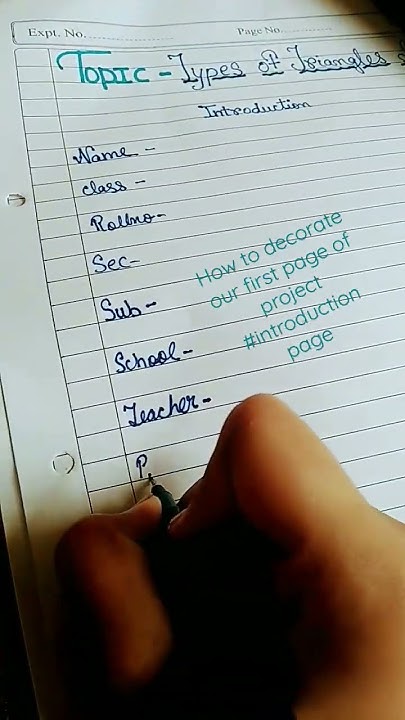 Expt. No.
Page No.
Topic - Types of Triangles
Introduction
Name -
class -
Rollno-
Sec-
Sub-
School-
Teacher-
P
How to decorate
our first page of
project
#introduction
page